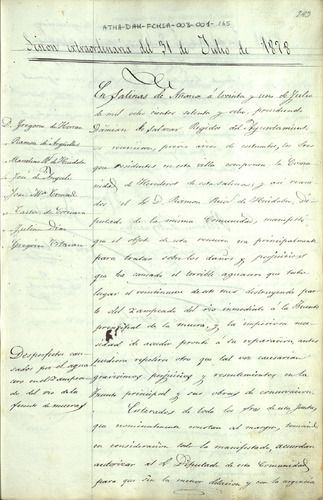 ATHA-DAH-FCHSA-003-001-165
Sesion extraordinaria del 31 de Julio de 1878
D. Gregorio de Herran
Ramon de Arguelles
José de Angulo
José Mª
Castor de
Julian Diaz
Gregorio
En Salinas de Añana á treinta y uno de Julio
de mil ocho cientos setenta y ocho, presidiendo
Damian de Salazar Regidor del Ayuntamiento,
se reunieron, previo aviso de costumbre, los Sres
residentes en esta villa componen la Comu-
nidad de Herederos de estas Salinas, y asi reuni-
dos el Sr. D. Ramon Ruiz de Di-
putado de la misma Comunidad, manifestó
que el objeto de esta reunion era principalmente
para tratar sobre los daños y perjuicios el
que ha causado el terrible aguacero que tubo
lugar el veintinueve de este mes destruyendo par-
te del zampeado del rio inmediato á la fuente
principal de la muera, y la imperiosa nece-
sidad de acudir pronto á su reparacion antes
pudiera repetirse otro que tal vez causarian
gravisimos perjuicios y resentimientos en la
fuente principal y sus obras de conservacion.
Desperfectos cau-
sados por el agua
cero en el Zampea-
do del rio de la
fuente de muera
Enterados de todo los Sres de esta Junta,
que nominalmente constan al margen, tomando
en consideracion todo lo manifestado, acuerdan
autorizar al Sr. Diputado de esta Comunidad,
para que sin la menor dilacion y con la urgencia